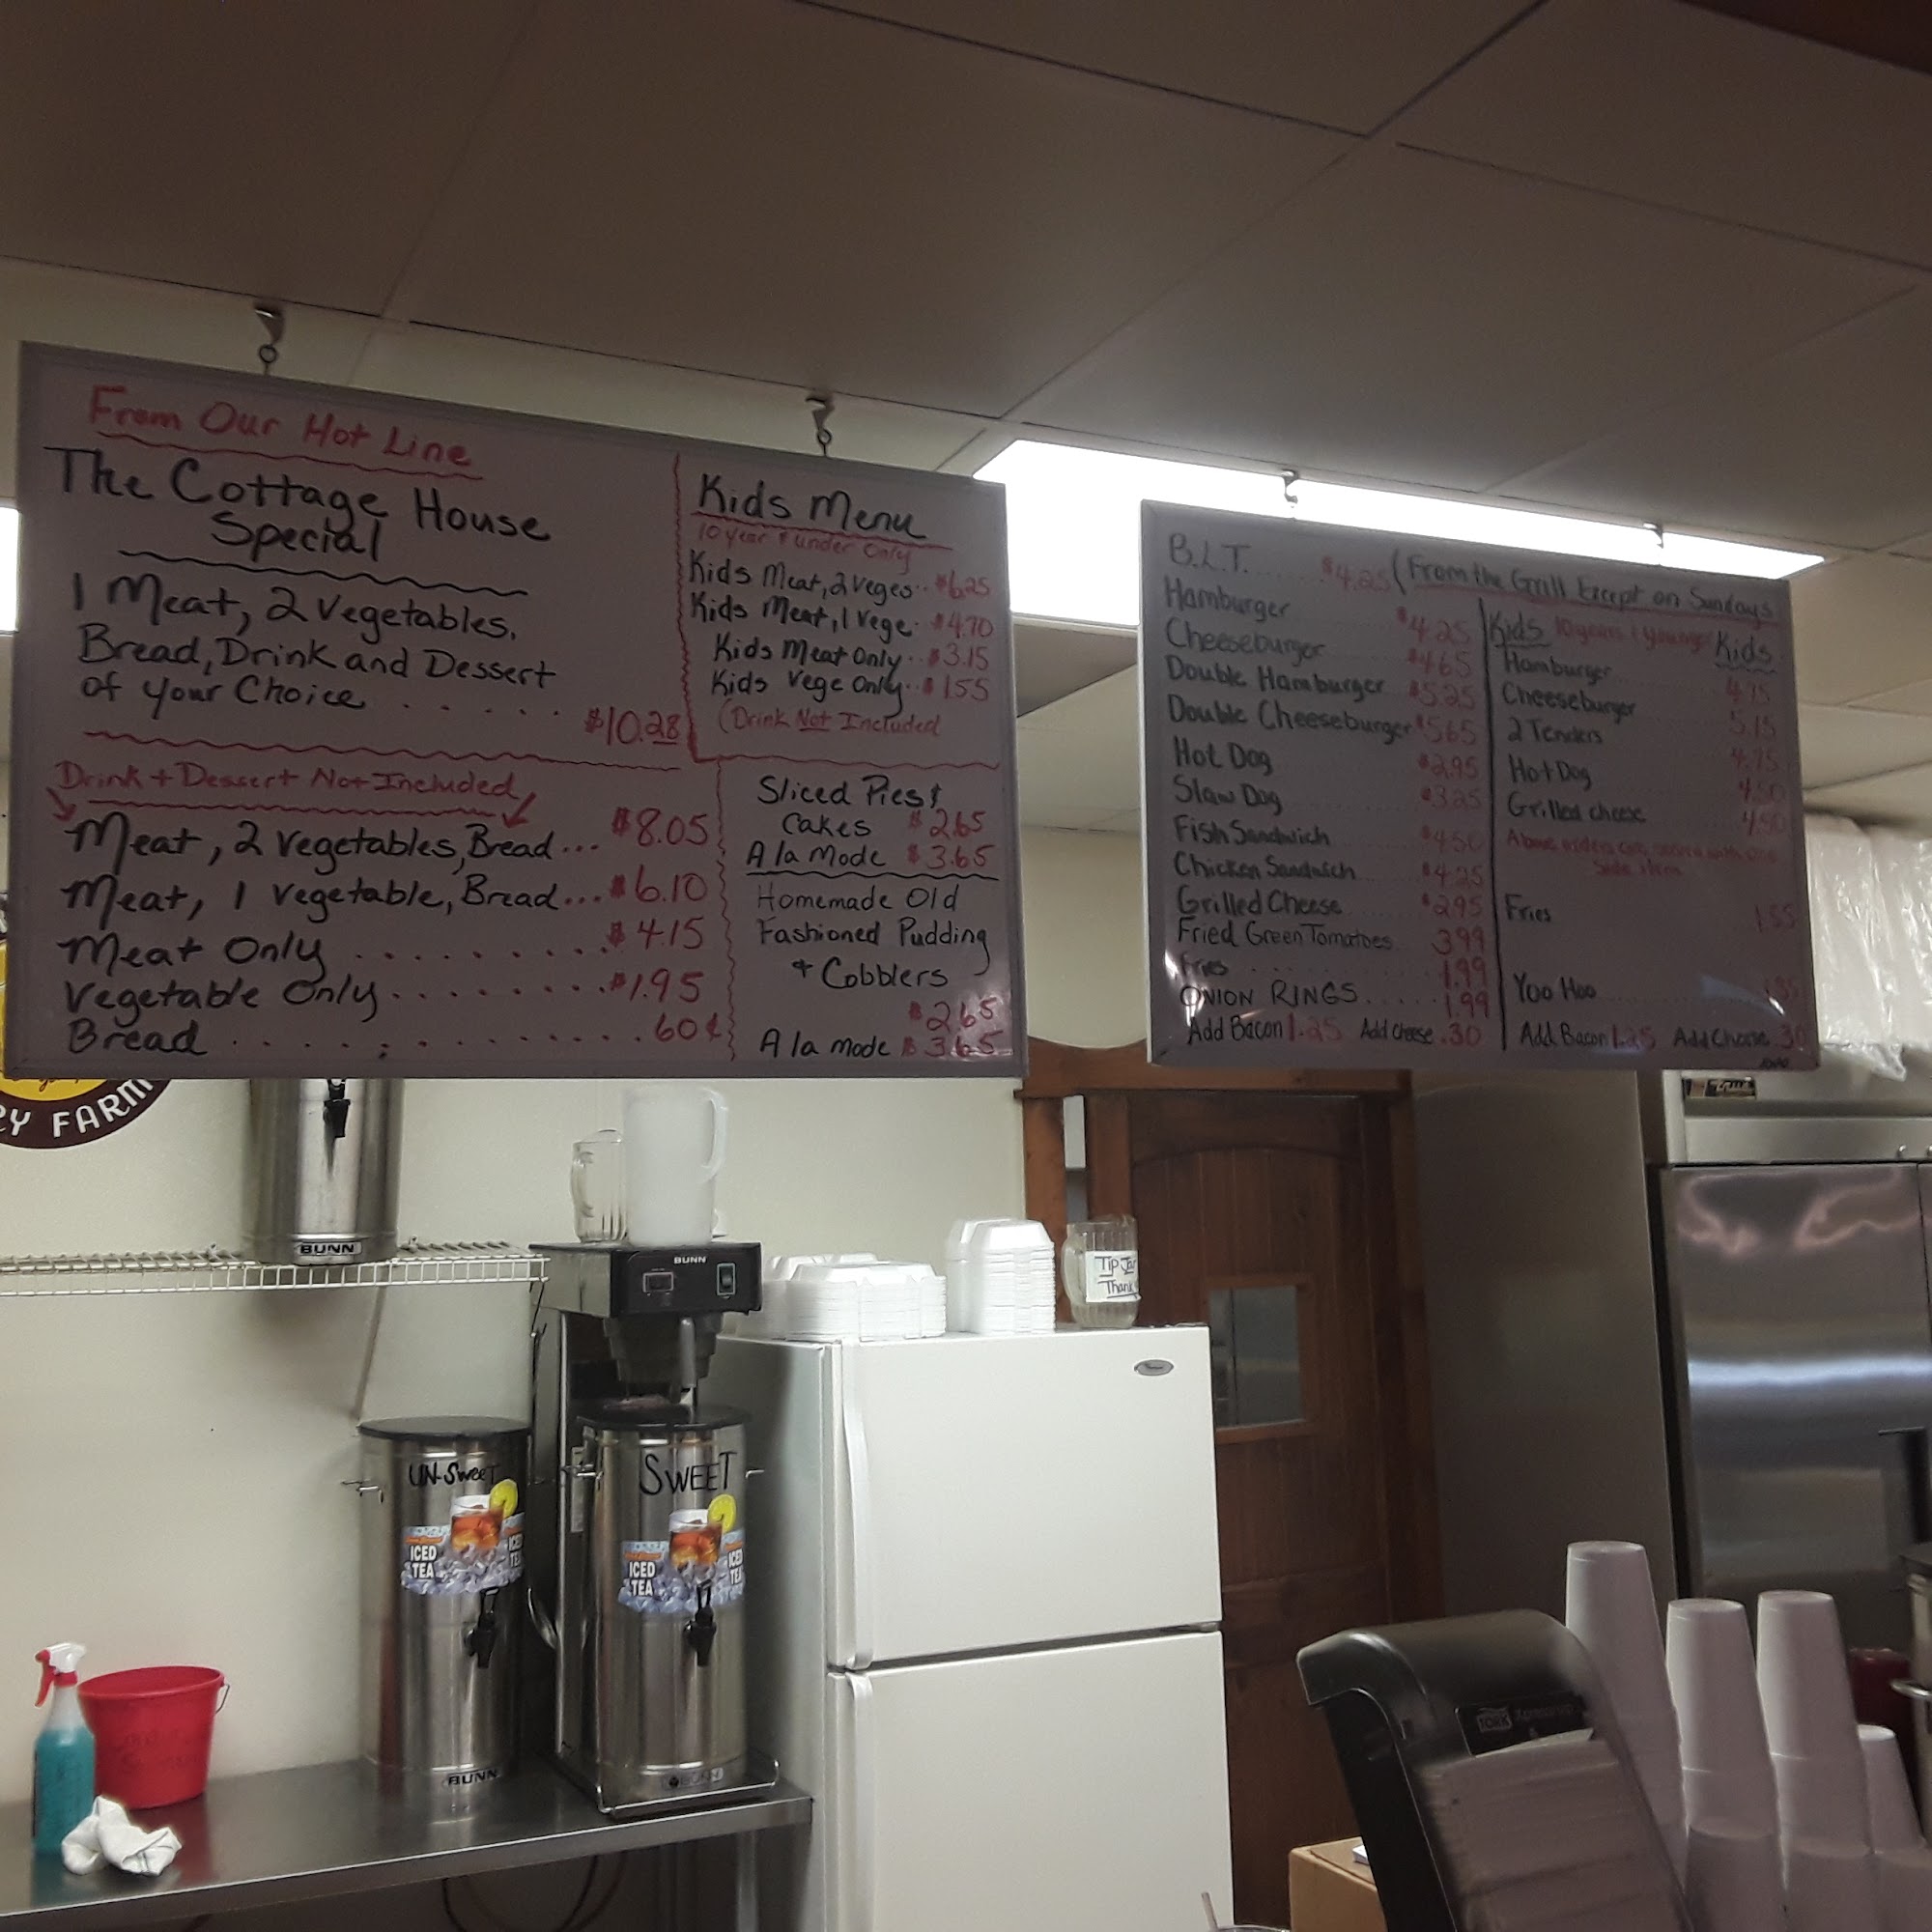 From Our Hot Line
The Cottage House
Special
1 Meat, 2 Vegetables,
Bread, Drink and Dessert
of your Choice . . . . . .
$10.28
Drink + Dessert Not Included
Meat, 2 vegetables, Bread... $8.05
Meat, 1 vegetable, Bread... $6.10
Meat Only . . . . . . . . . $4.15
Vegetable Only......... $1.95
Bread . . . . . . . . . . . . . . 60¢
Kids Menu
10 year & under Only
Kids Meat, 2 Veges.. $6.25
Kids Meat, 1 Vege. $4.70
Kids Meat Only.. $3.15
Kids Vege Only.. $1.55
(Drink Not Included
Sliced Pies &
Cakes $2.65
A la mode $3.65
Homemade Old
Fashioned Pudding
+ Cobblers
$2.65
A la mode $3.65
B.L.T. $4.25
(From the Grill Except on Sundays
Hamburger $4.25
Cheeseburger $4.65
Double Hamburger $5.25
Double Cheeseburger $5.65
Hot Dog $2.95
Slaw Dog $3.25
Fish Sandwich $4.50
Chicken Sandwich $4.25
Grilled Cheese $2.95
Fried Green Tomatoes 3.99
Fries 1.99
ONION RINGS..... 1.99
Add Bacon 1.25 Add cheese .30
Kids 10 years & younger Kids
Hamburger 4.75
Cheeseburger 5.15
2 Tenders 4.75
Hot Dog 4.50
Grilled cheese 4.50
Above orders are served with one
Side item
Fries 1.55
Yoo Hoo
Add Bacon 1.25 Add Cheese .30
FARM
BUNN
BUNN
Tip Jar
Thank
UN-Sweet
ICED
TEA
ICED
TE
BUNN
SWEET
ICED
TEA
ICED
TEA
BUNN
TORK Xpressnap